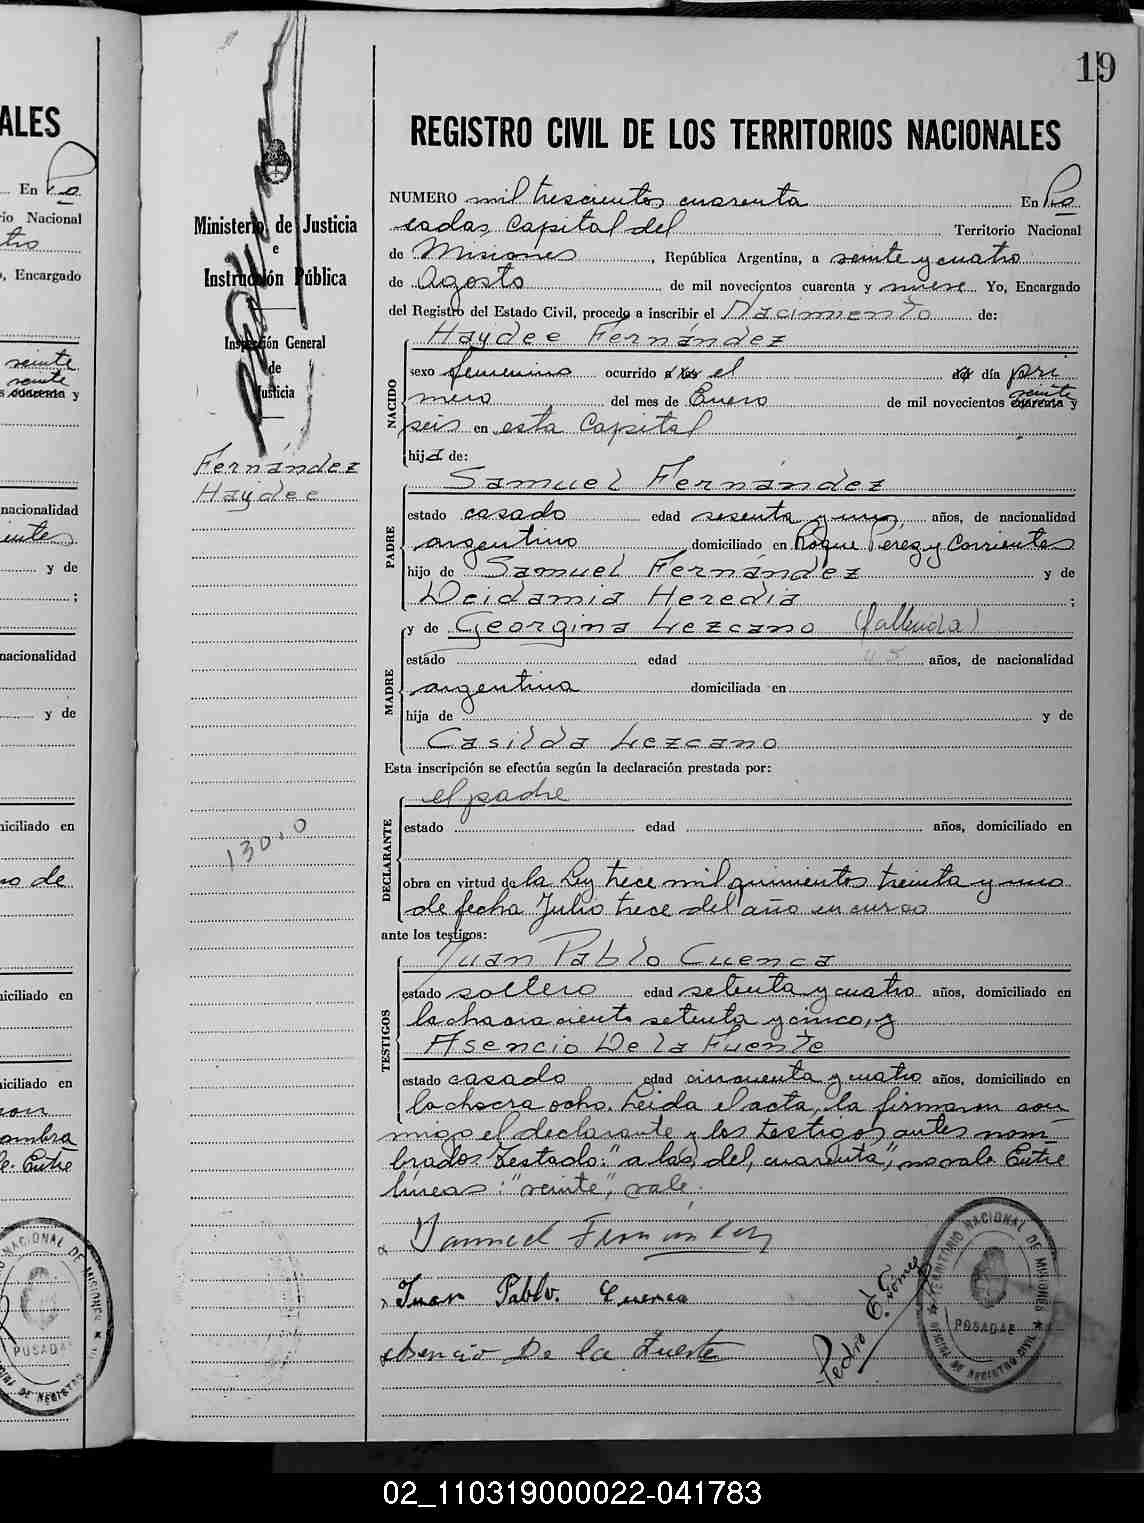 19
ALES
REGISTRO CIVIL DE LOS TERRITORIOS NACIONALES
NUMERO mil trescientos cuarenta En Po
sadas Capital del Territorio Nacional
de Misiones, República Argentina, a veinte y cuatro
de Agosto de mil novecientos cuarenta y nueve Yo, Encargado
del Registro del Estado Civil, procedo a inscribir el Nacimiento de:
Haydee Fernández
NACIDO
sexo femenino ocurrido a las el del día pri
mero del mes de Enero de mil novecientos cuarenta veinte y
seis en esta Capital
hija de:
PADRE
Samuel Fernández
estado casado edad sesenta y uno, años, de nacionalidad
argentino domiciliado en Roque Perez y Corrientes
hijo de Samuel Fernández y de
Deidamia Heredia ;
MADRE
y de Georgina Lezcano (fallecida)
estado edad años, de nacionalidad
argentina domiciliada en
hija de y de
Casilda Lezcano
Esta inscripción se efectúa según la declaración prestada por:
DECLARANTE
el padre
estado edad años, domiciliado en
obra en virtud de la Ley trece mil quinientos treinta y uno
de fecha Julio trece del año en curso
ante los testigos:
TESTIGOS
Juan Pablo Cuenca
estado soltero edad setenta y cuatro años, domiciliado en
la chacra ciento setenta y cinco, y
Asencio De la Fuente
estado casado edad cincuenta y cuatro años, domiciliado en
la chacra ocho. Leida el acta, la firmaron con
migo el declarante y los testigos antes nom
brados Testado: "a las, del, cuarenta", no vale. Entre
líneas: "veinte", vale.
Samuel Fernández
Juan Pablo. Cuenca
Asencio De la Fuente
Pedro E. Gómez
TERRITORIO NACIONAL DE MISIONES
POSADAS
OFICINA DE REGISTRO CIVIL
Ministerio de Justicia
e
Instrucción Pública
Inspección General
de
Justicia
Fernández
Haydee
130.0
En Po
rio Nacional
tro
, Encargado
veinte
veinte
s cuarenta y
nacionalidad
y de
;
nacionalidad
y de
niciliado en
no de
niciliado en
niciliado en
con
ombra
le. Entre
NACIONAL DE MISIONES
POSADAS
DE REGISTRO
02_110319000022-041783